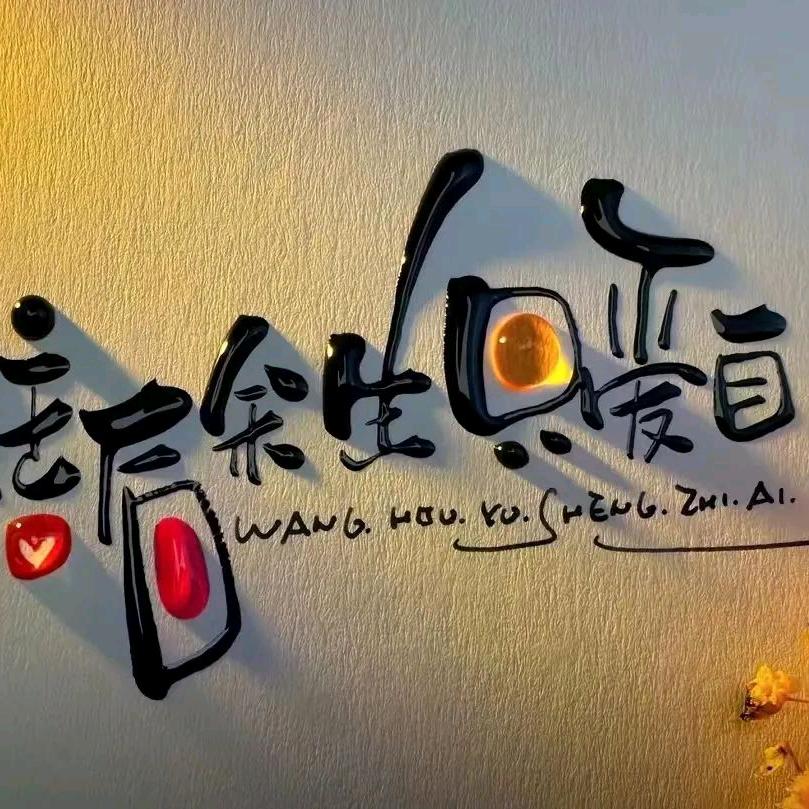 往后余生只爱自
WANG. HOU. YU. SHENG. ZHI. AI.